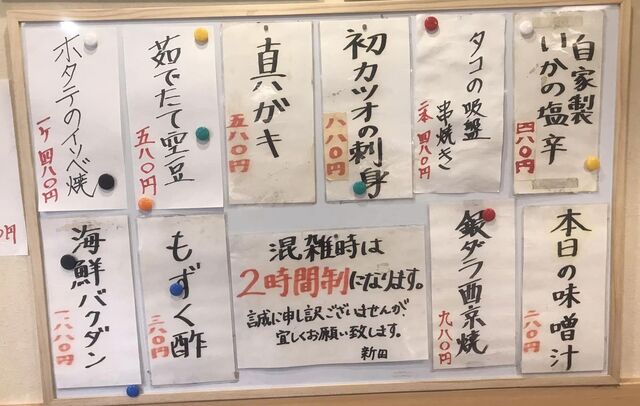 自家製
いかの塩辛
四八〇円
タコの吸盤
串焼き
二本 四八〇円
初カツオの刺身
八八〇円
真ガキ
五八〇円
茹でたて空豆
五八〇円
ホタテのイソベ焼
一ケ 四八〇円
本日の味噌汁
二八〇円
銀ダラ西京焼
九八〇円
混雑時は
2時間制になります。
誠に申し訳ございませんが
宜しくお願い致します。
新田
もずく酢
三八〇円
海鮮バクダン
一、八八〇円
円